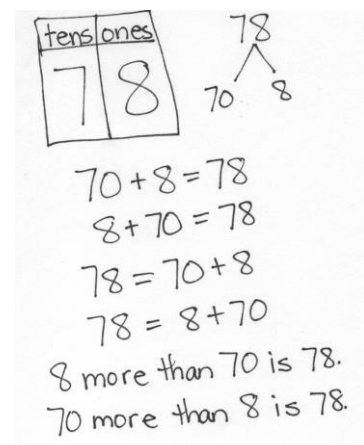 tens ones
7 8
78
70 8
70 + 8 = 78
8 + 70 = 78
78 = 70 + 8
78 = 8 + 70
8 more than 70 is 78.
70 more than 8 is 78.